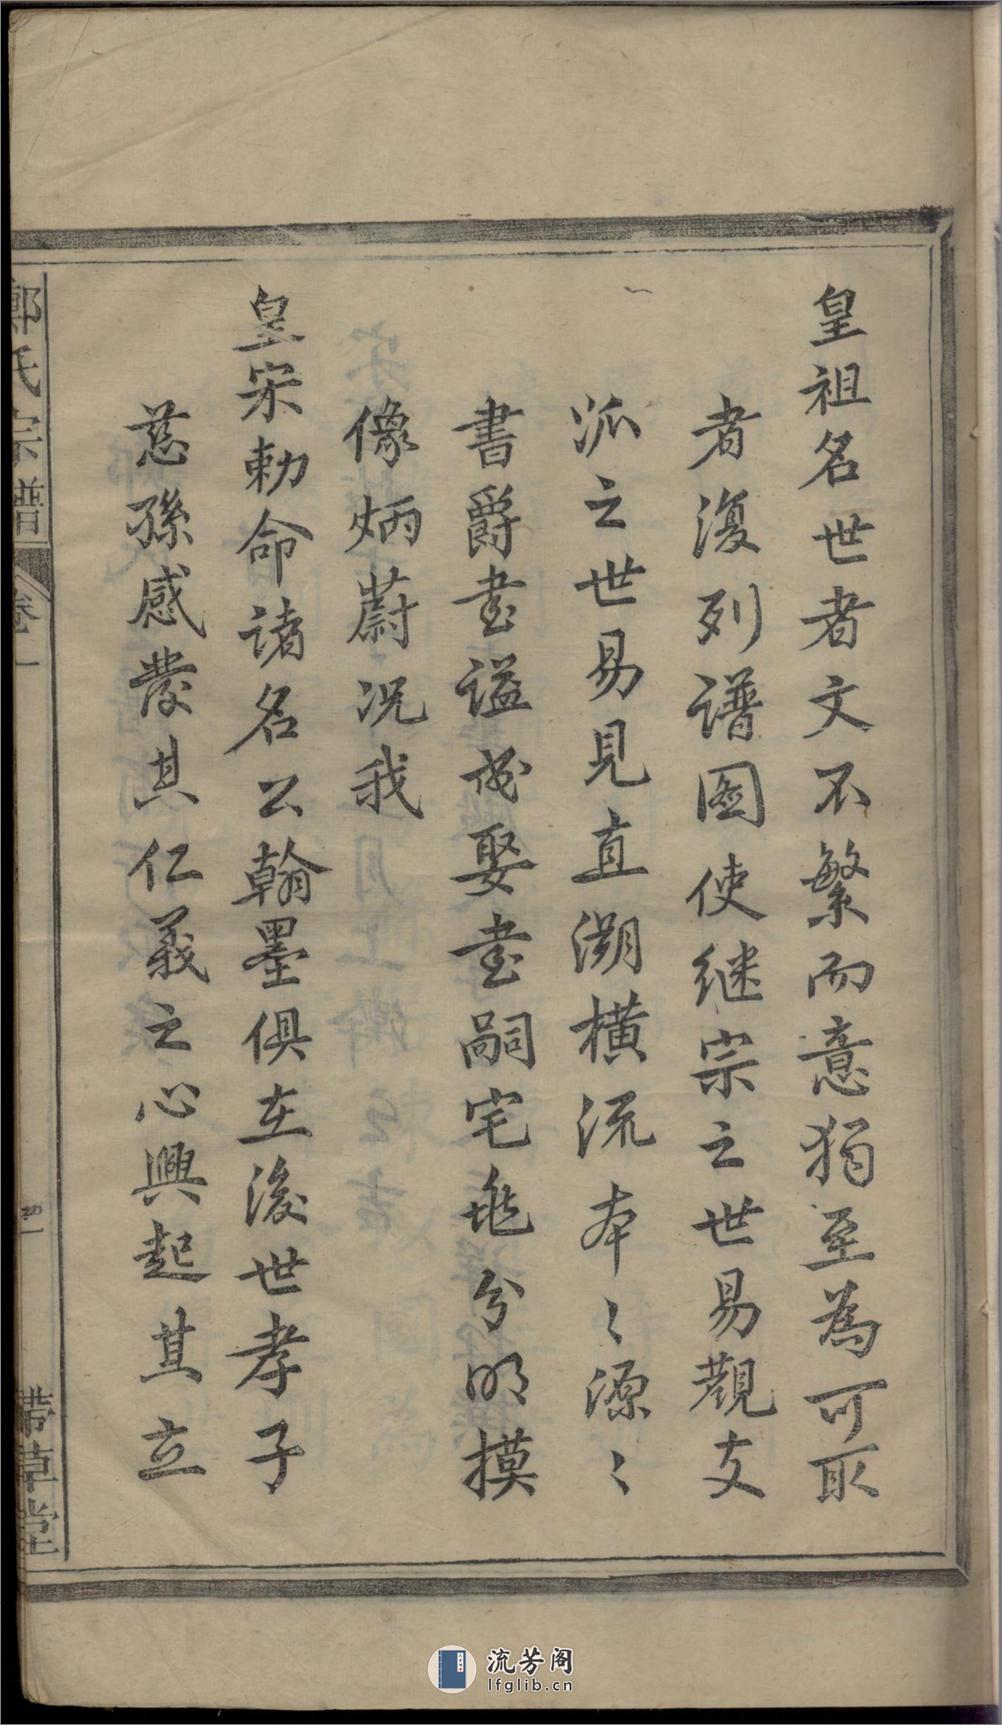 皇祖名世者文不繁而意猶至為可取
者復列譜图使继宗之世易觀支
派之世易見直溯横流本〻源〻
書爵書谥書娶書嗣宅兆分明摸
像炳蔚况我
皇宋勅命諸名公翰墨俱在後世孝子
慈孫感發其仁義之心興起其立
鄭氏宗譜 卷一
帶草堂
流芳阁
lfglib.cn